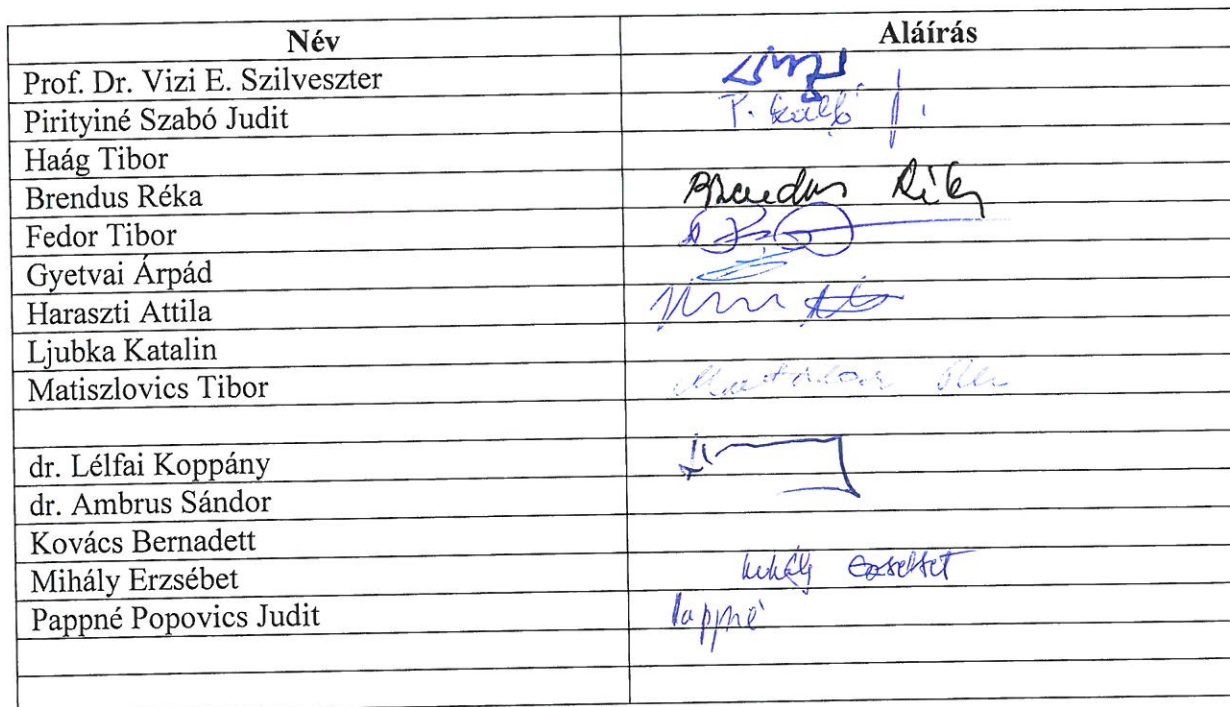 Név Aláírás
Prof. Dr. Vizi E. Szilveszter
Pirityiné Szabó Judit P.
Haág Tibor
Brendus Réka Brendus Réka
Fedor Tibor
Gyetvai Árpád
Haraszti Attila
Ljubka Katalin
Matiszlovics Tibor
dr. Lélfai Koppány
dr. Ambrus Sándor
Kovács Bernadett
Mihály Erzsébet Mihály Erzsébet
Pappné Popovics Judit Pappné